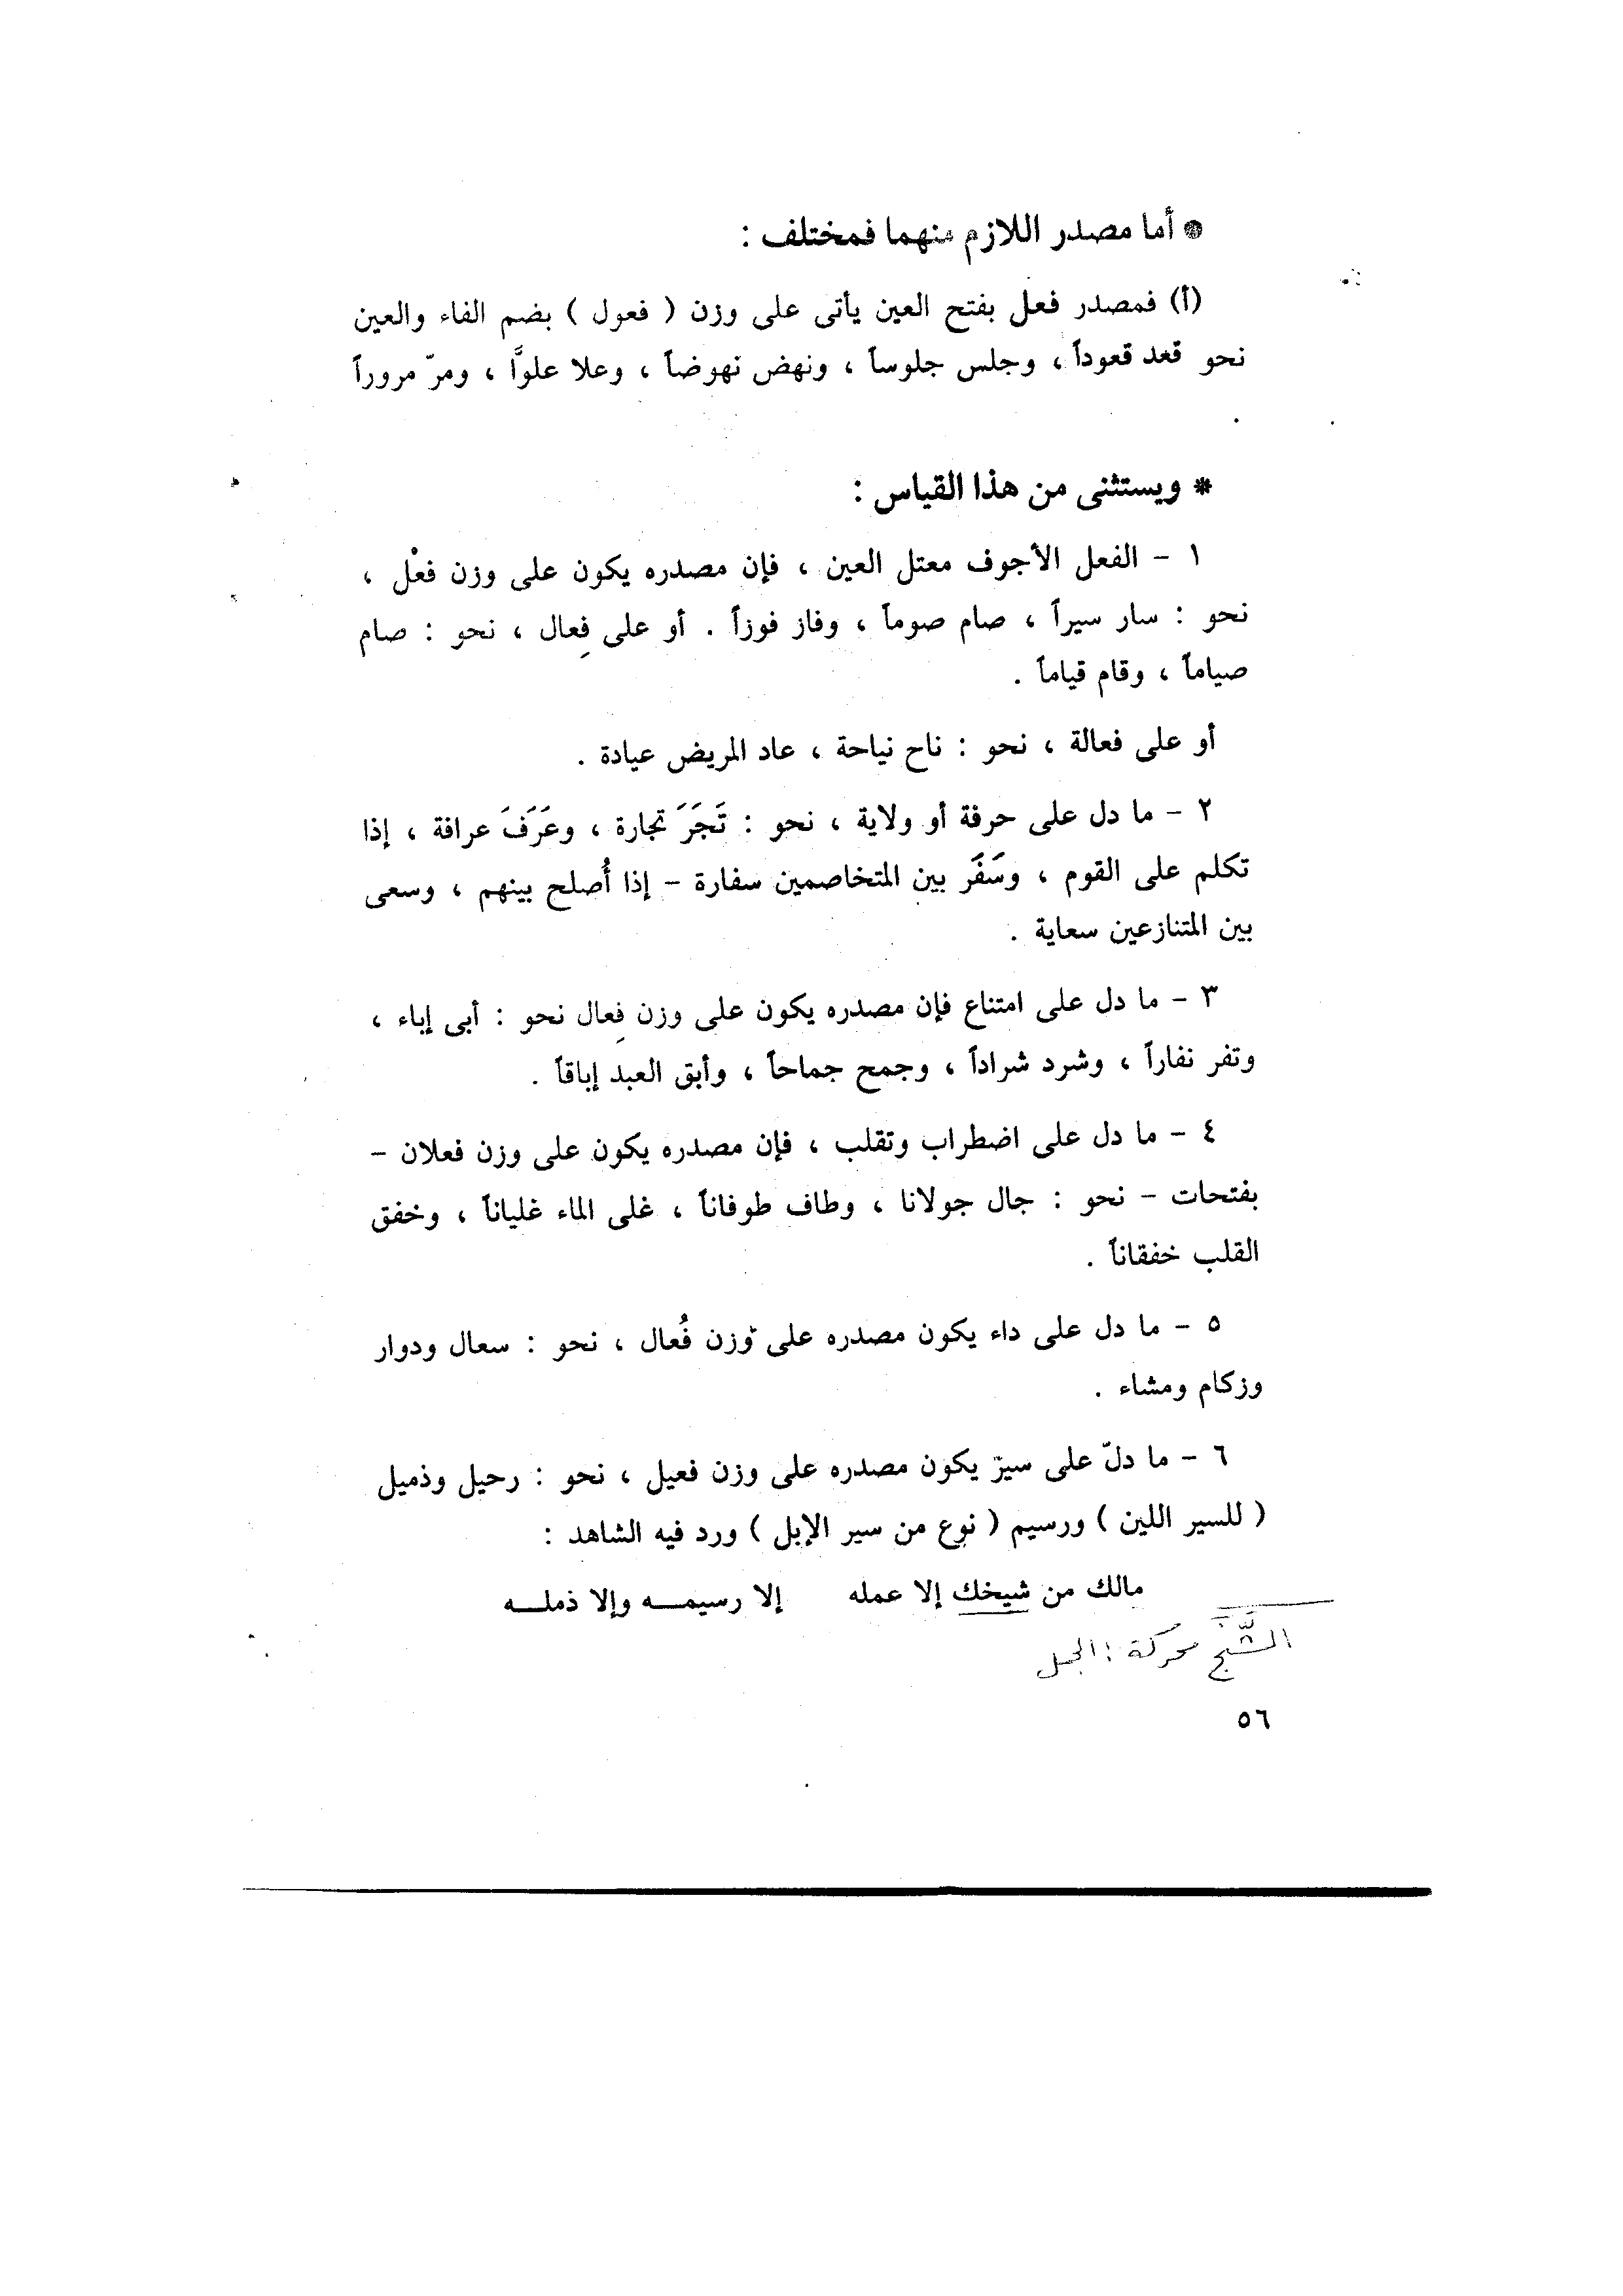 ● أما مصدر اللازم منهما فمختلف :
(أ) فمصدر فعل بفتح العين يأتى على وزن ( فعول ) بضم الفاء والعين
نحو قعد قعوداً ، وجلس جلوساً ، ونهض نهوضاً ، وعلا علوًّا ، ومرّ مروراً
.
* ويستثنى من هذا القياس :
١ - الفعل الأجوف معتل العين ، فإن مصدره يكون على وزن فعْل ،
نحو : سار سيراً ، صام صوماً ، وفاز فوزاً . أو على فِعال ، نحو : صام
صياماً ، وقام قياماً .
أو على فعالة ، نحو : ناح نياحة ، عاد المريض عيادة .
٢ - ما دل على حرفة أو ولاية ، نحو : تَجَرَ تجارة ، وعَرَفَ عرافة ، إذا
تكلم على القوم ، وسَفَر بين المتخاصمين سفارة - إذا أُصلح بينهم ، وسعى
بين المتنازعين سعاية .
٣ - ما دل على امتناع فإن مصدره يكون على وزن فِعال نحو : أبى إباء ،
وتفر نفاراً ، وشرد شراداً ، وجمح جماحاً ، وأبق العبد إباقاً .
٤ - ما دل على اضطراب وتقلب ، فإن مصدره يكون على وزن فعلان -
بفتحات - نحو : جال جولانا ، وطاف طوفاناً ، غلى الماء غلياناً ، وخفق
القلب خفقاناً .
٥ - ما دل على داء يكون مصدره على وزن فُعال ، نحو : سعال ودوار
وزكام ومشاء .
٦ - ما دلّ على سير يكون مصدره على وزن فعيل ، نحو : رحيل وذميل
( للسير اللين ) ورسيم ( نوع من سير الإبل ) ورد فيه الشاهد :
مالك من شيخك إلا عمله إلا رسيمـــه وإلا ذملـــه
محركة : الجمل
٥٦